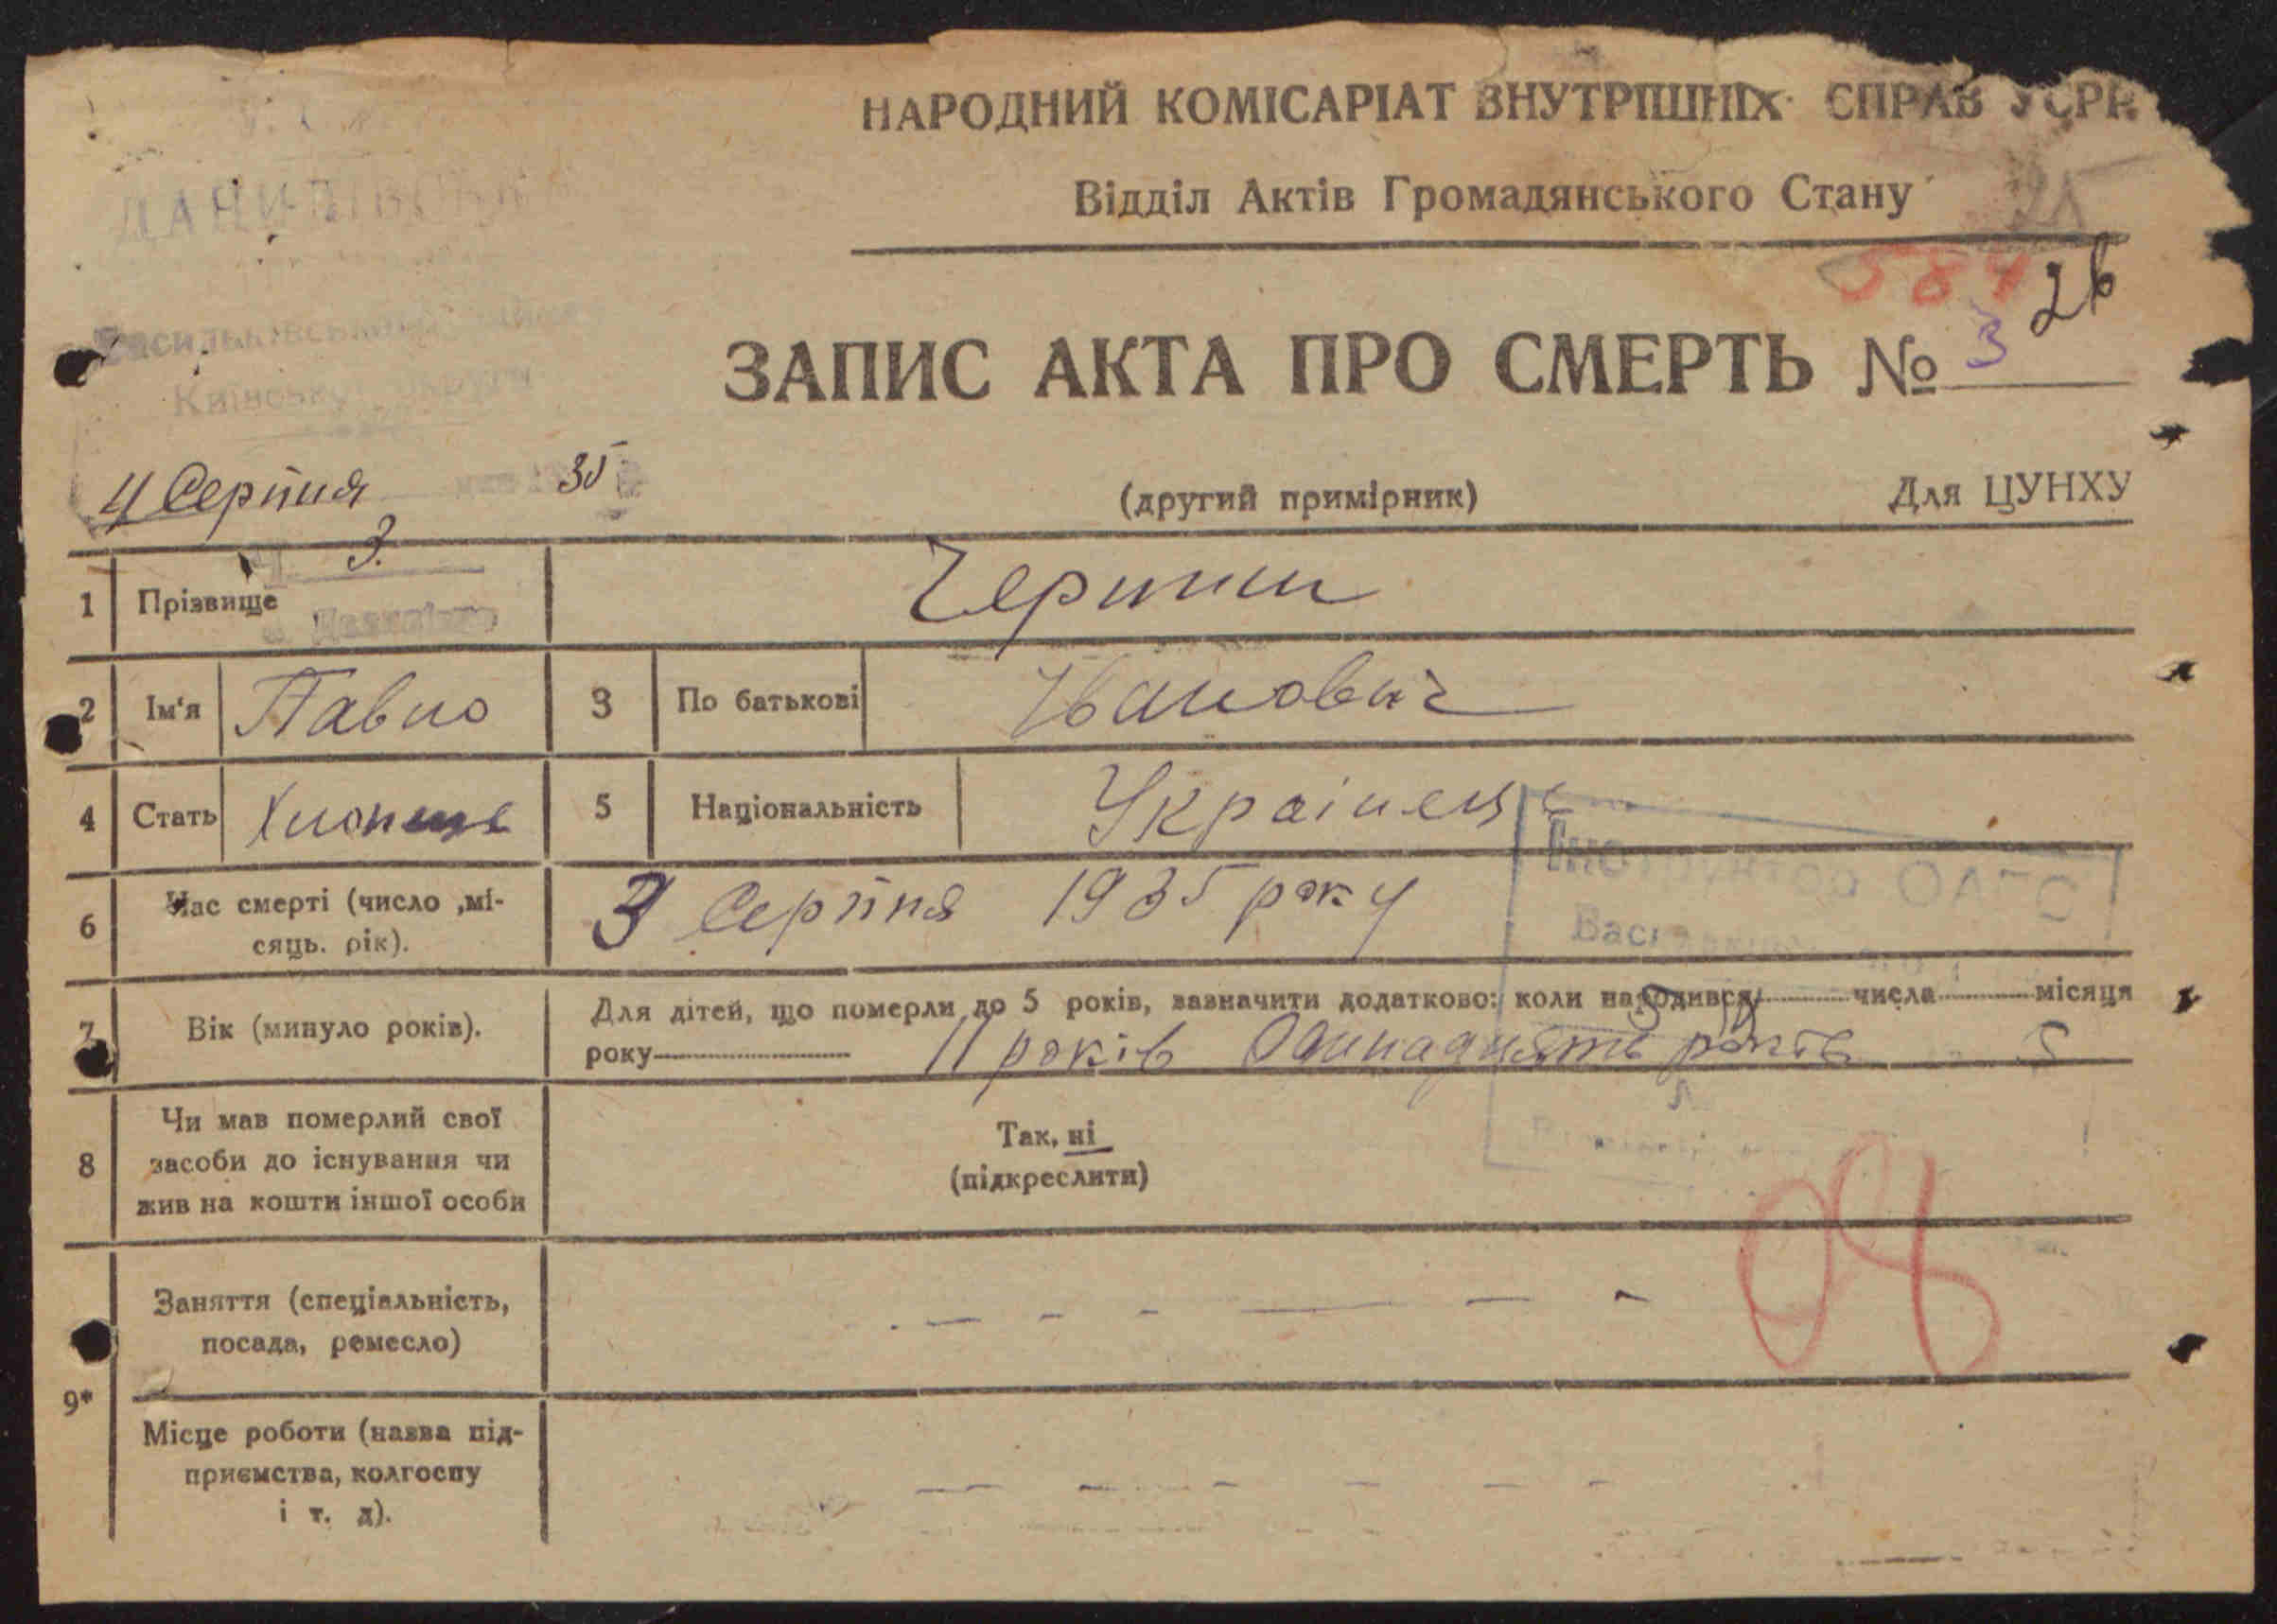 НАРОДНИЙ КОМІСАРІАТ ВНУТРІШНІХ СПРАВ УСРР
Відділ Актів Громадянського Стану
584
26
ЗАПИС АКТА ПРО СМЕРТЬ № 3
4 Серпня 35
(другий примірник)
Для ЦУНХУ
3.
1 Прізвище
2 Ім'я Павло 3 По батькові Іванович
4 Стать Хлопець 5 Національність Українець
6 Час смерті (число ,мі-
сяць. рік).
3 Серпня 1935 року
7 Вік (минуло років).
Для дітей, що померли до 5 років, зазначити додатково: коли народився числа місяця
року 11 років Одинадцять років
8 Чи мав померлий свої
засоби до існування чи
жив на кошти іншої особи
Так, ні
(підкреслити)
9*
Заняття (спеціальність,
посада, ремесло)
Місце роботи (назва під-
приємства, колгоспу
і т. д).